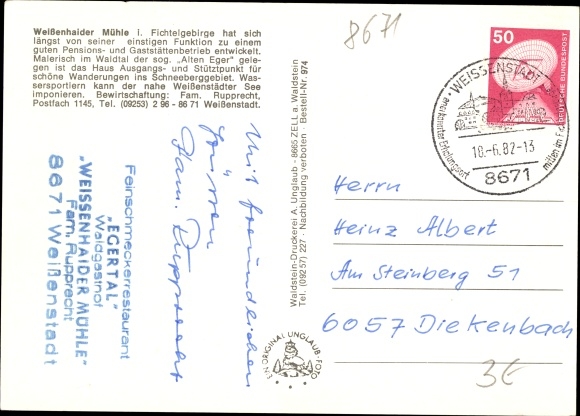 Weißenhaider Mühle i. Fichtelgebirge hat sich
längst von seiner einstigen Funktion zu einem
guten Pensions- und Gaststättenbetrieb entwickelt.
Malerisch im Waldtal der sog. „Alten Eger" gele-
gen ist das Haus Ausgangs- und Stütztpunkt für
schöne Wanderungen ins Schneeberggebiet. Was-
sersportlern kann der nahe Weißenstädter See
imponieren. Bewirtschaftung: Fam. Rupprecht,
Postfach 1145, Tel. (09253) 2 96 - 86 71 Weißenstadt.
8671
50
DEUTSCHE BUNDESPOST
WEISSENSTADT
anerkannter Erholungsort
mitten im
18.-6.82-13
8671
Mit freundlichen
Grüssen
Fam. Rupprecht
Feinschmeckerrestaurant
„EGERTAL"
Waldgasthof
„WEISSENHAIDER MÜHLE"
Fam. Rupprecht
8671 Weißenstadt
Waldstein-Druckerei A. Unglaub - 8665 ZELL a. Waldstein
Tel. (09257) 227 - Nachbildung verboten - Bestell-Nr. 974
EIN ORIGINAL UNGLAUB-FOTO
Herrn
Heinz Albert
Am Steinberg 51
6057 Diekenbach
3€